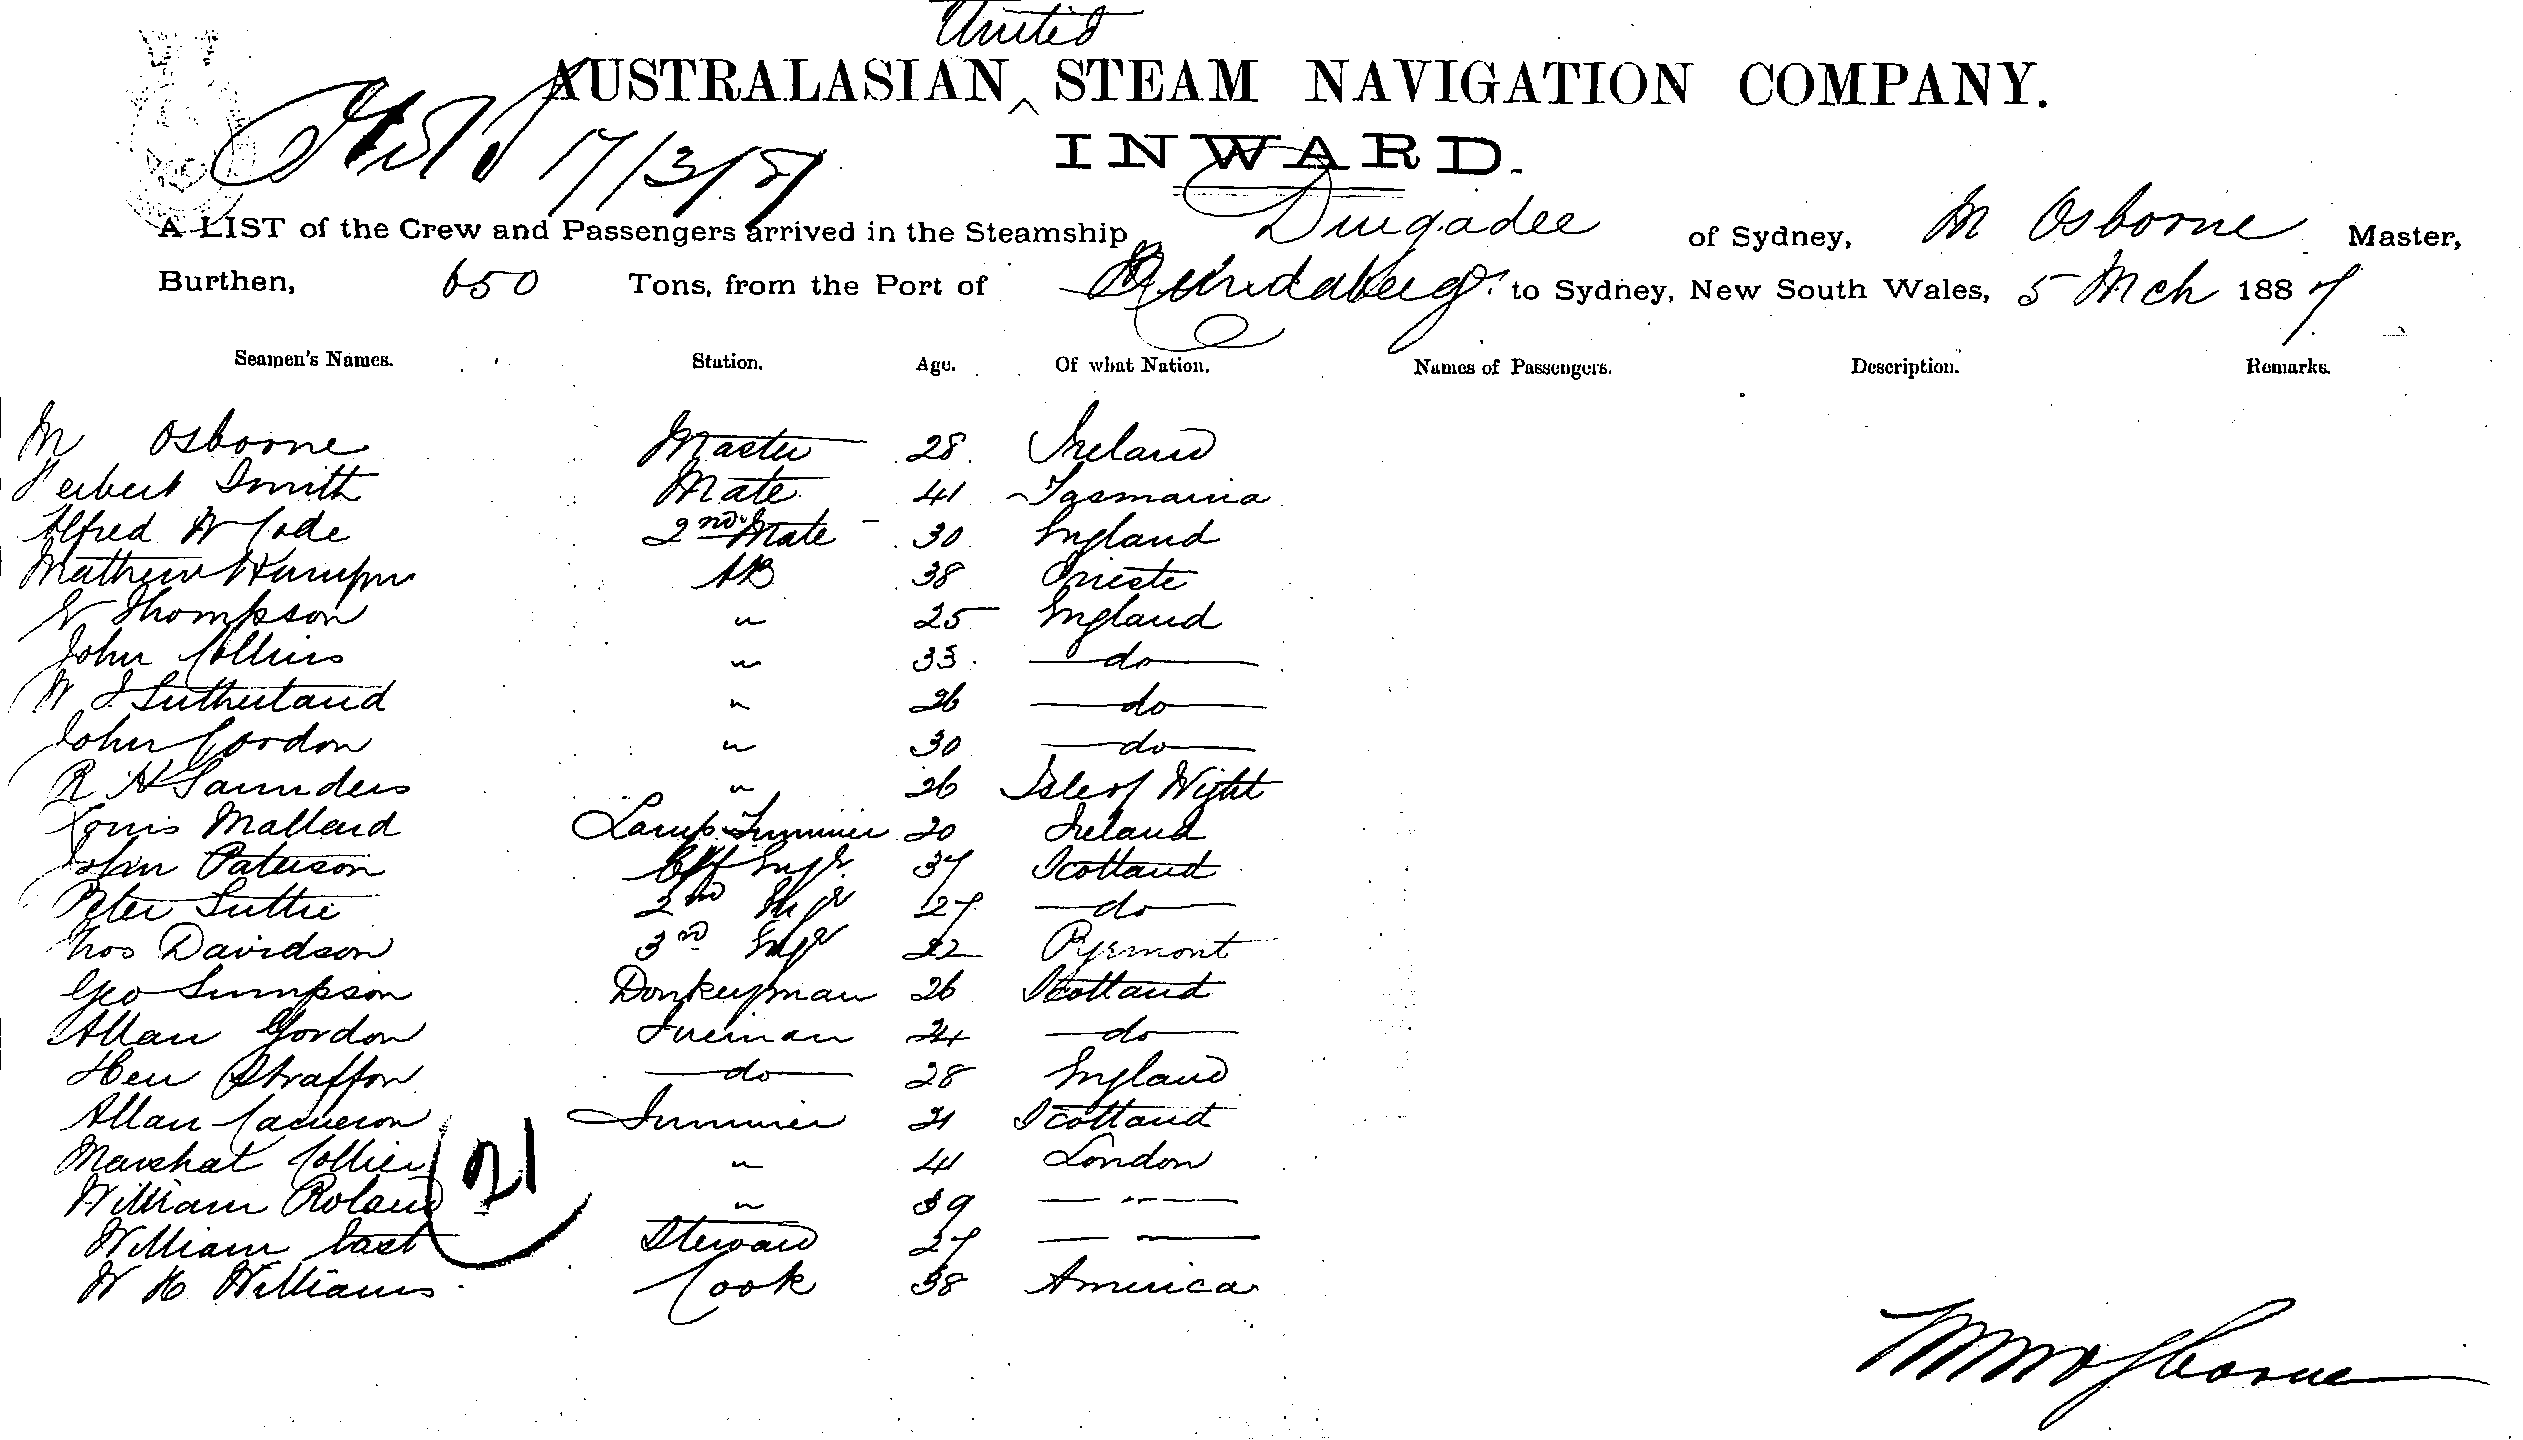 United
AUSTRALASIAN ^ STEAM NAVIGATION COMPANY.
17/3/87
INWARD.
A LIST of the Crew and Passengers arrived in the Steamship Dingadee of Sydney, M Osborne Master,
Burthen, 650 Tons, from the Port of Bundaberg to Sydney, New South Wales, 5 Mch 1887
Seamen's Names. Station. Age. Of what Nation. Names of Passengers. Description. Remarks.
M Osborne Master 28 Ireland
Herbert Smith Mate 41 Tasmania
Alfred W Cade 2nd Mate 30 England
Mathew AB 38 Trieste
Thompson " 25 England
John Collins " 33 do
W J Sutherland " 26 do
John Gordon " 30 do
R H Saunders " 26 Isle of Wight
Louis Mallard Lamp Trimmer 20 Ireland
John Paterson Chf Engr 37 Scotland
Peter Suttie 2nd Engr 27 do
Thos Davidson 3rd Engr 22 Pyrmont
Geo Simpson Donkeyman 26 Scotland
Allan Gordon Fireman 24 do
Hen Straffon do 28 England
Allan Cameron Trimmer 21 Scotland
Marshal Collier " 41 London
William Roland " 39 "
William East Steward 27 —
W H Williams Cook 38 America
21
M Osborne